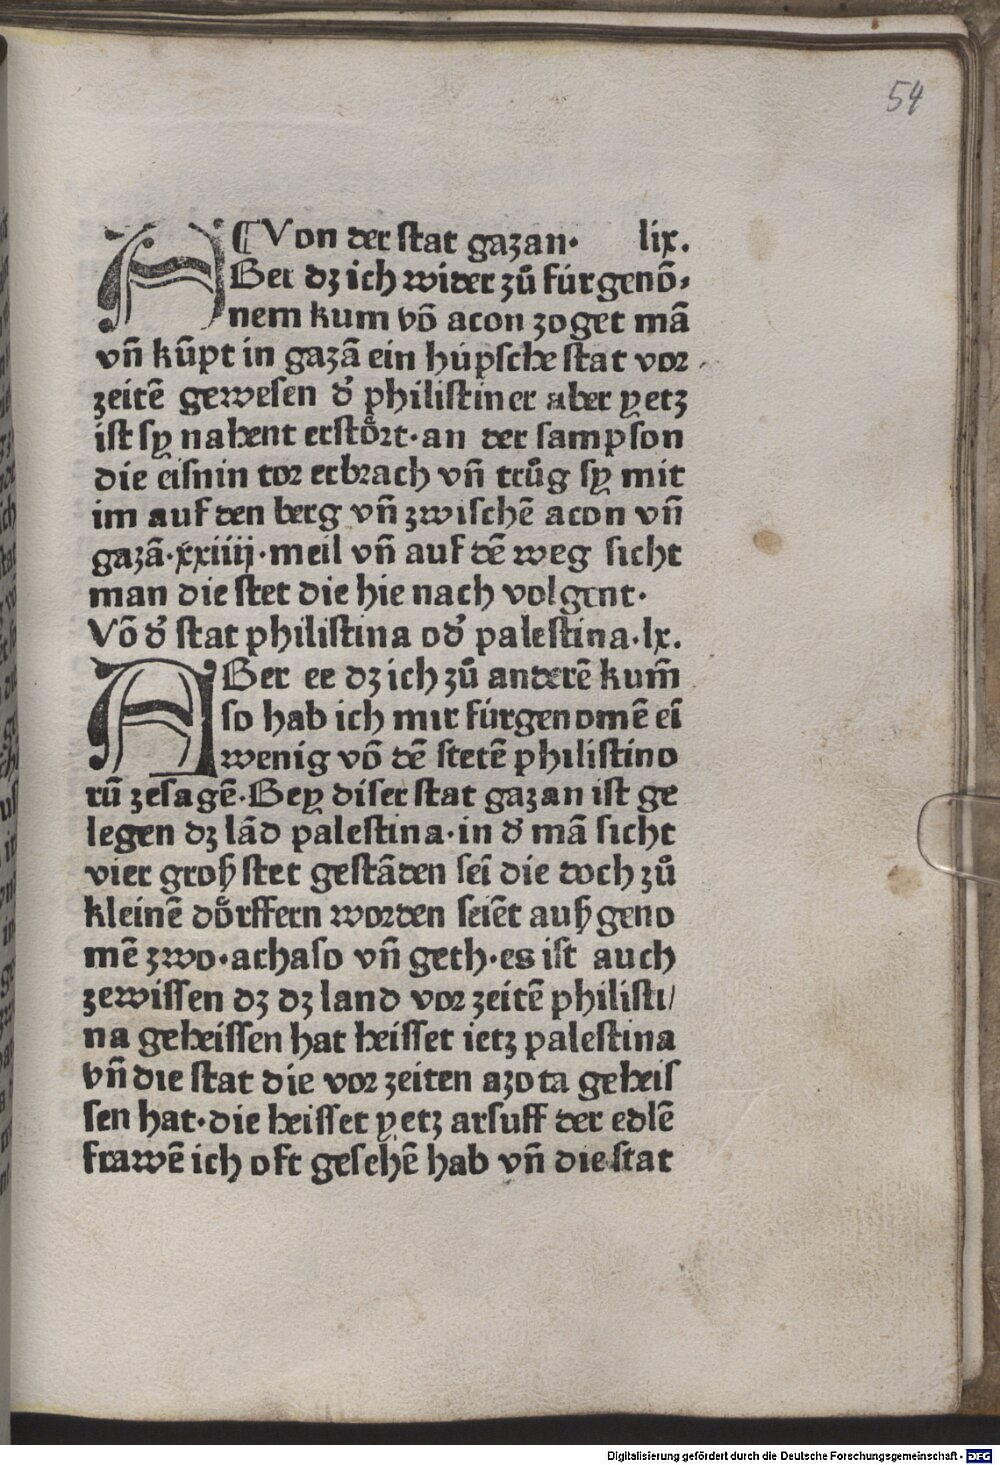 54
¶Von der stat gazan. lix.
ABer dz ich wider zů fúrgenō⸗
nem kum vō acon zoget mā
vn̄ kūpt in gazā ein húpsche stat vor
zeitē gewesen d͛ philistiner aber yetz
ist sy nahent erstoͤrt·an der sampson
die eisnin tor erbrach vn̄ trůg sy mit
im auf den berg vn̄ zwischē acon vn̄
gazā·xxiiij·meil vn̄ auf dē weg sicht
man die stet die hie nach volgent·
Vō d͛ stat philistina od͛ palestina·lx.
ABer ee dz ich zů anderē kum̄
so hab ich mir fúrgenomē eī
wenig vō dē stetē philistino
rū zesagē·Bey diser stat gazan ist ge
legen dz lād palestina·in d͛ mā sicht
vier groß stet gestāden seī die doch zů
kleinē doͤrffern worden seiēt außgeno
mē zwo·achaso vn̄ geth·es ist auch
zewissen dz dz land vor zeitē philisti/
na geheissen hat heisset ietz palestina
vn̄ die stat die vor zeiten azota geheis
sen hat·die heisset yetz arsuff der edlē
frawē ich oft gesehē hab vn̄ die stat
Digitalisierung gefördert durch die Deutsche Forschungsgemeinschaft - DFG